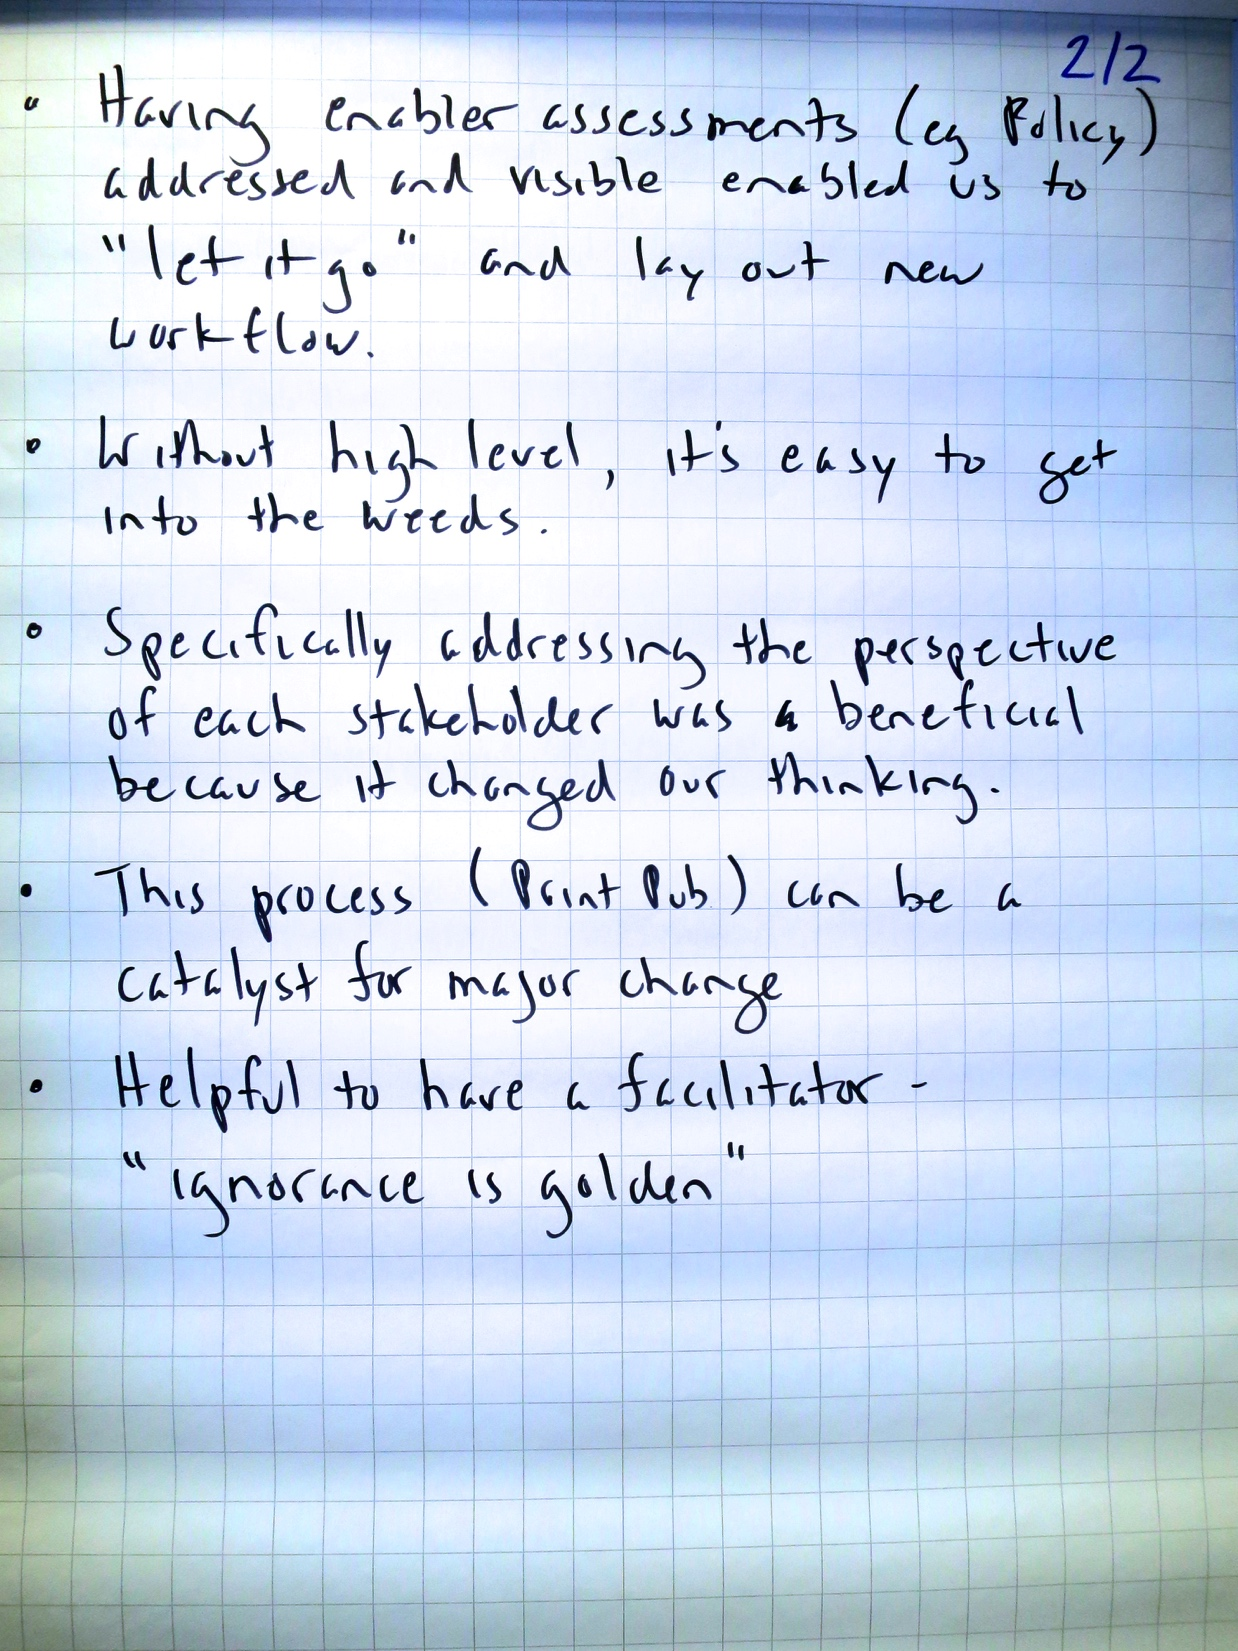 2/2
• Having enabler assessments (eg Policy)
addressed and visible enabled us to
"let it go." and lay out new
workflow.
• Without high level, it's easy to get
into the weeds.
• Specifically addressing the perspective
of each stakeholder was a beneficial
because it changed our thinking.
• This process (Print Pub) can be a
catalyst for major change
• Helpful to have a facilitator -
"ignorance is golden"